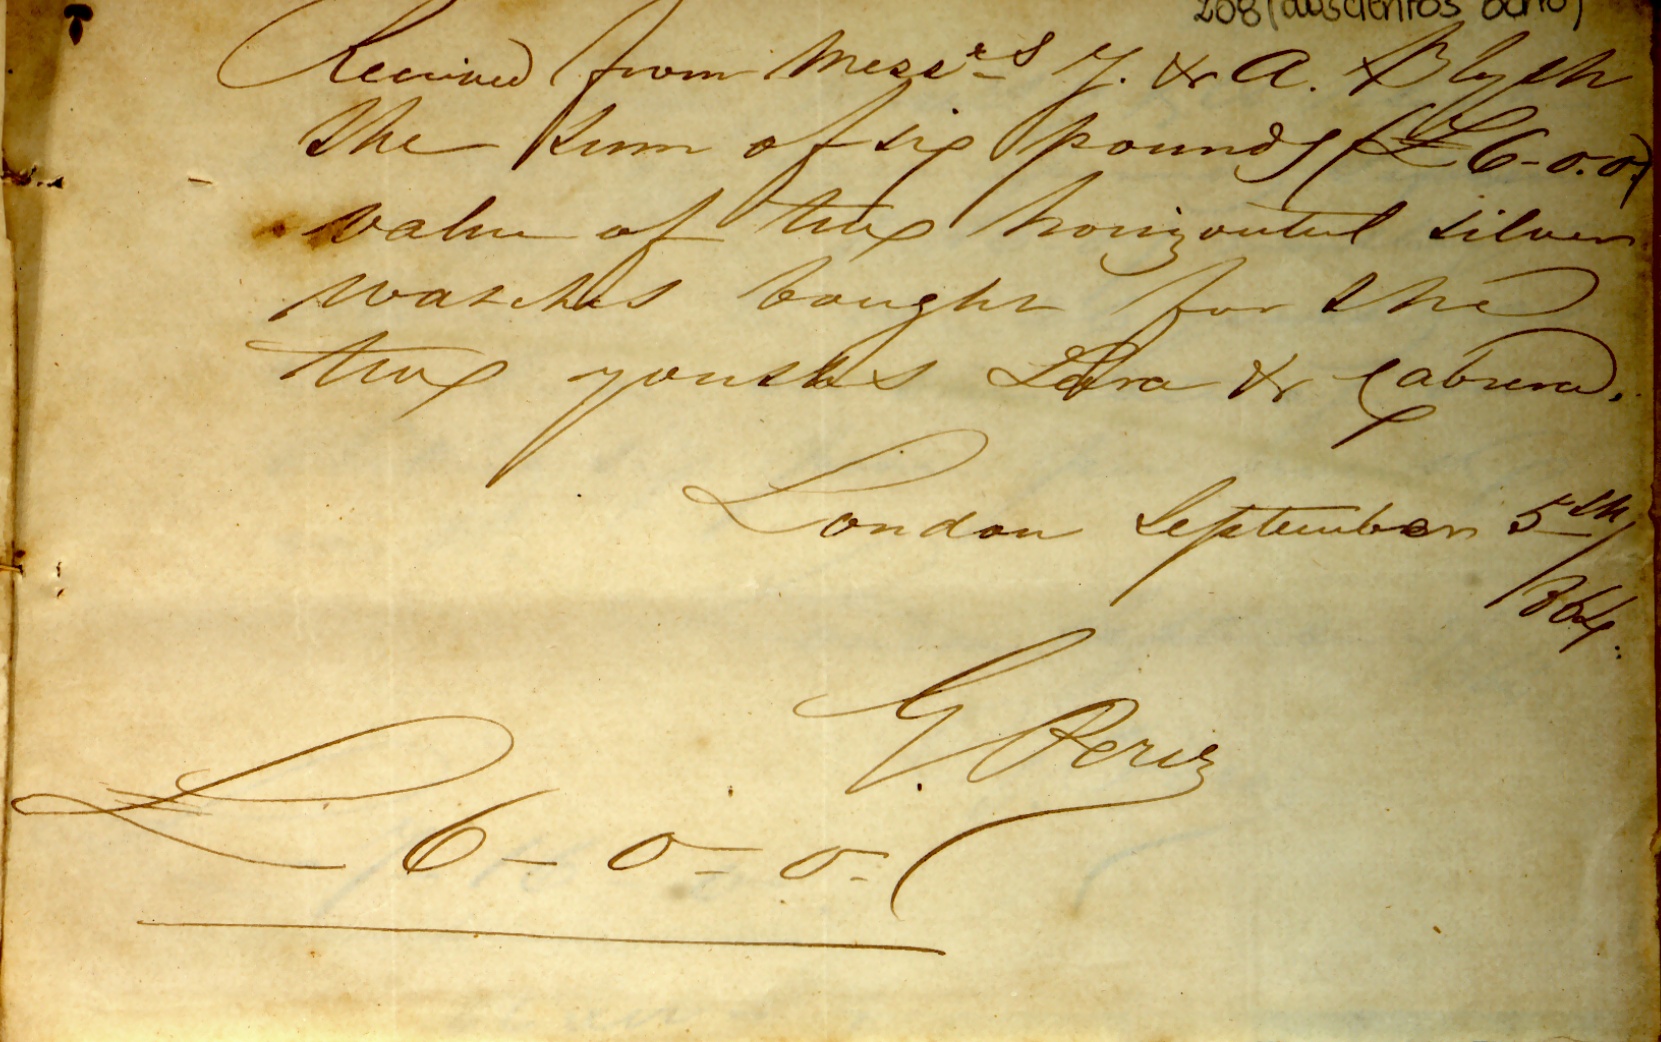 208 (doscientos ocho)
Received from Messrs J. & A. Blyth
the sum of six pounds (£6-0.0.)
value of two horizontal silver
watches bought for the
two youths Lara & Cabrera.
London September 5th/
/864.
G. Perez
£6-0-0.